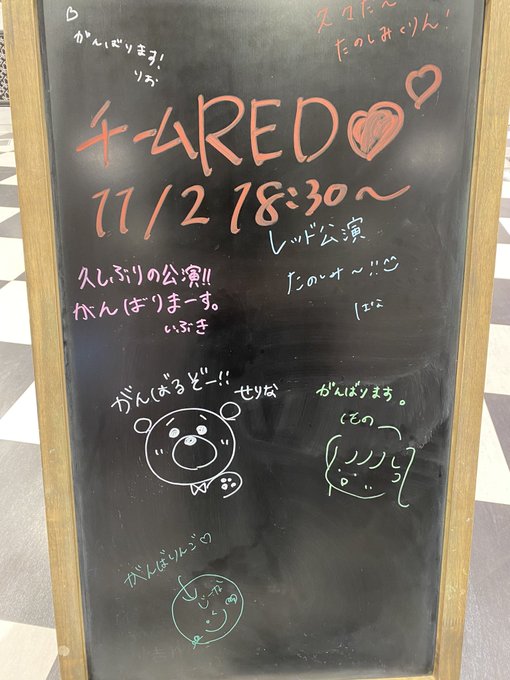 がんばります!
りお
久々だ〜
たのしみくりん!
チームRED
11/2 18:30〜
レッド公演
たのしみ〜!!
はな
久しぶりの公演!!
がんばりまーす。
いぶき
がんばるぞー!!
せりな
がんばります。
しもの
がんばりんご♡
じーな